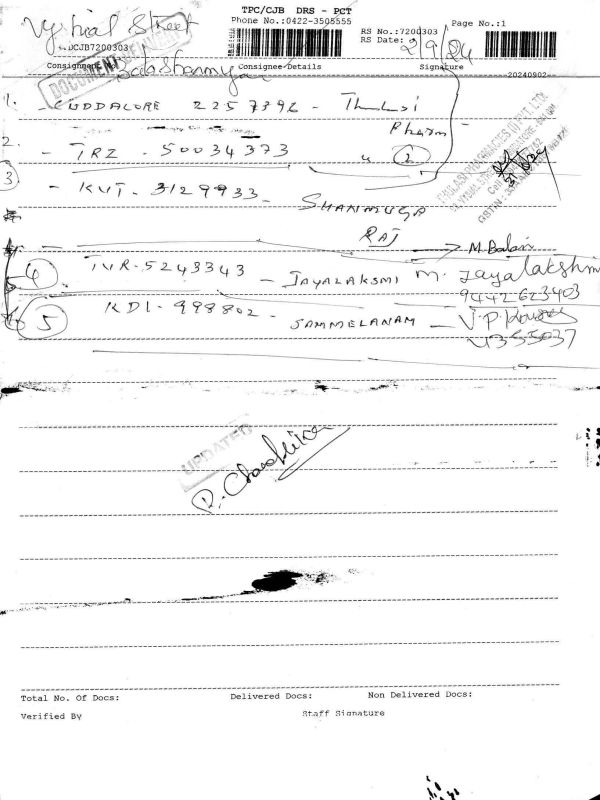 TPC/CJB DRS - PCT
Phone No.:0422-3505555
Page No.:1
RS No.:7200303
RS Date: 2/9/24
Street
DCJB7200303
Consignee Details
Signature
20240902
1. - CUDDALORE 2257392 - Thulasi
Pharm
2. - TRZ - 50034373 - " 2
3 - KUT - 3129933 - SHANMUGA
RAJ → M. Balan
4 TUR - 5243343 - JAYALAKSMI M. Jayalakshmi
9442623403
5 KDI - 998802 - SAMMELANAM - V.P.
4355037
UPDATED
Total No. Of Docs:
Delivered Docs:
Non Delivered Docs:
Verified By
Staff Signature